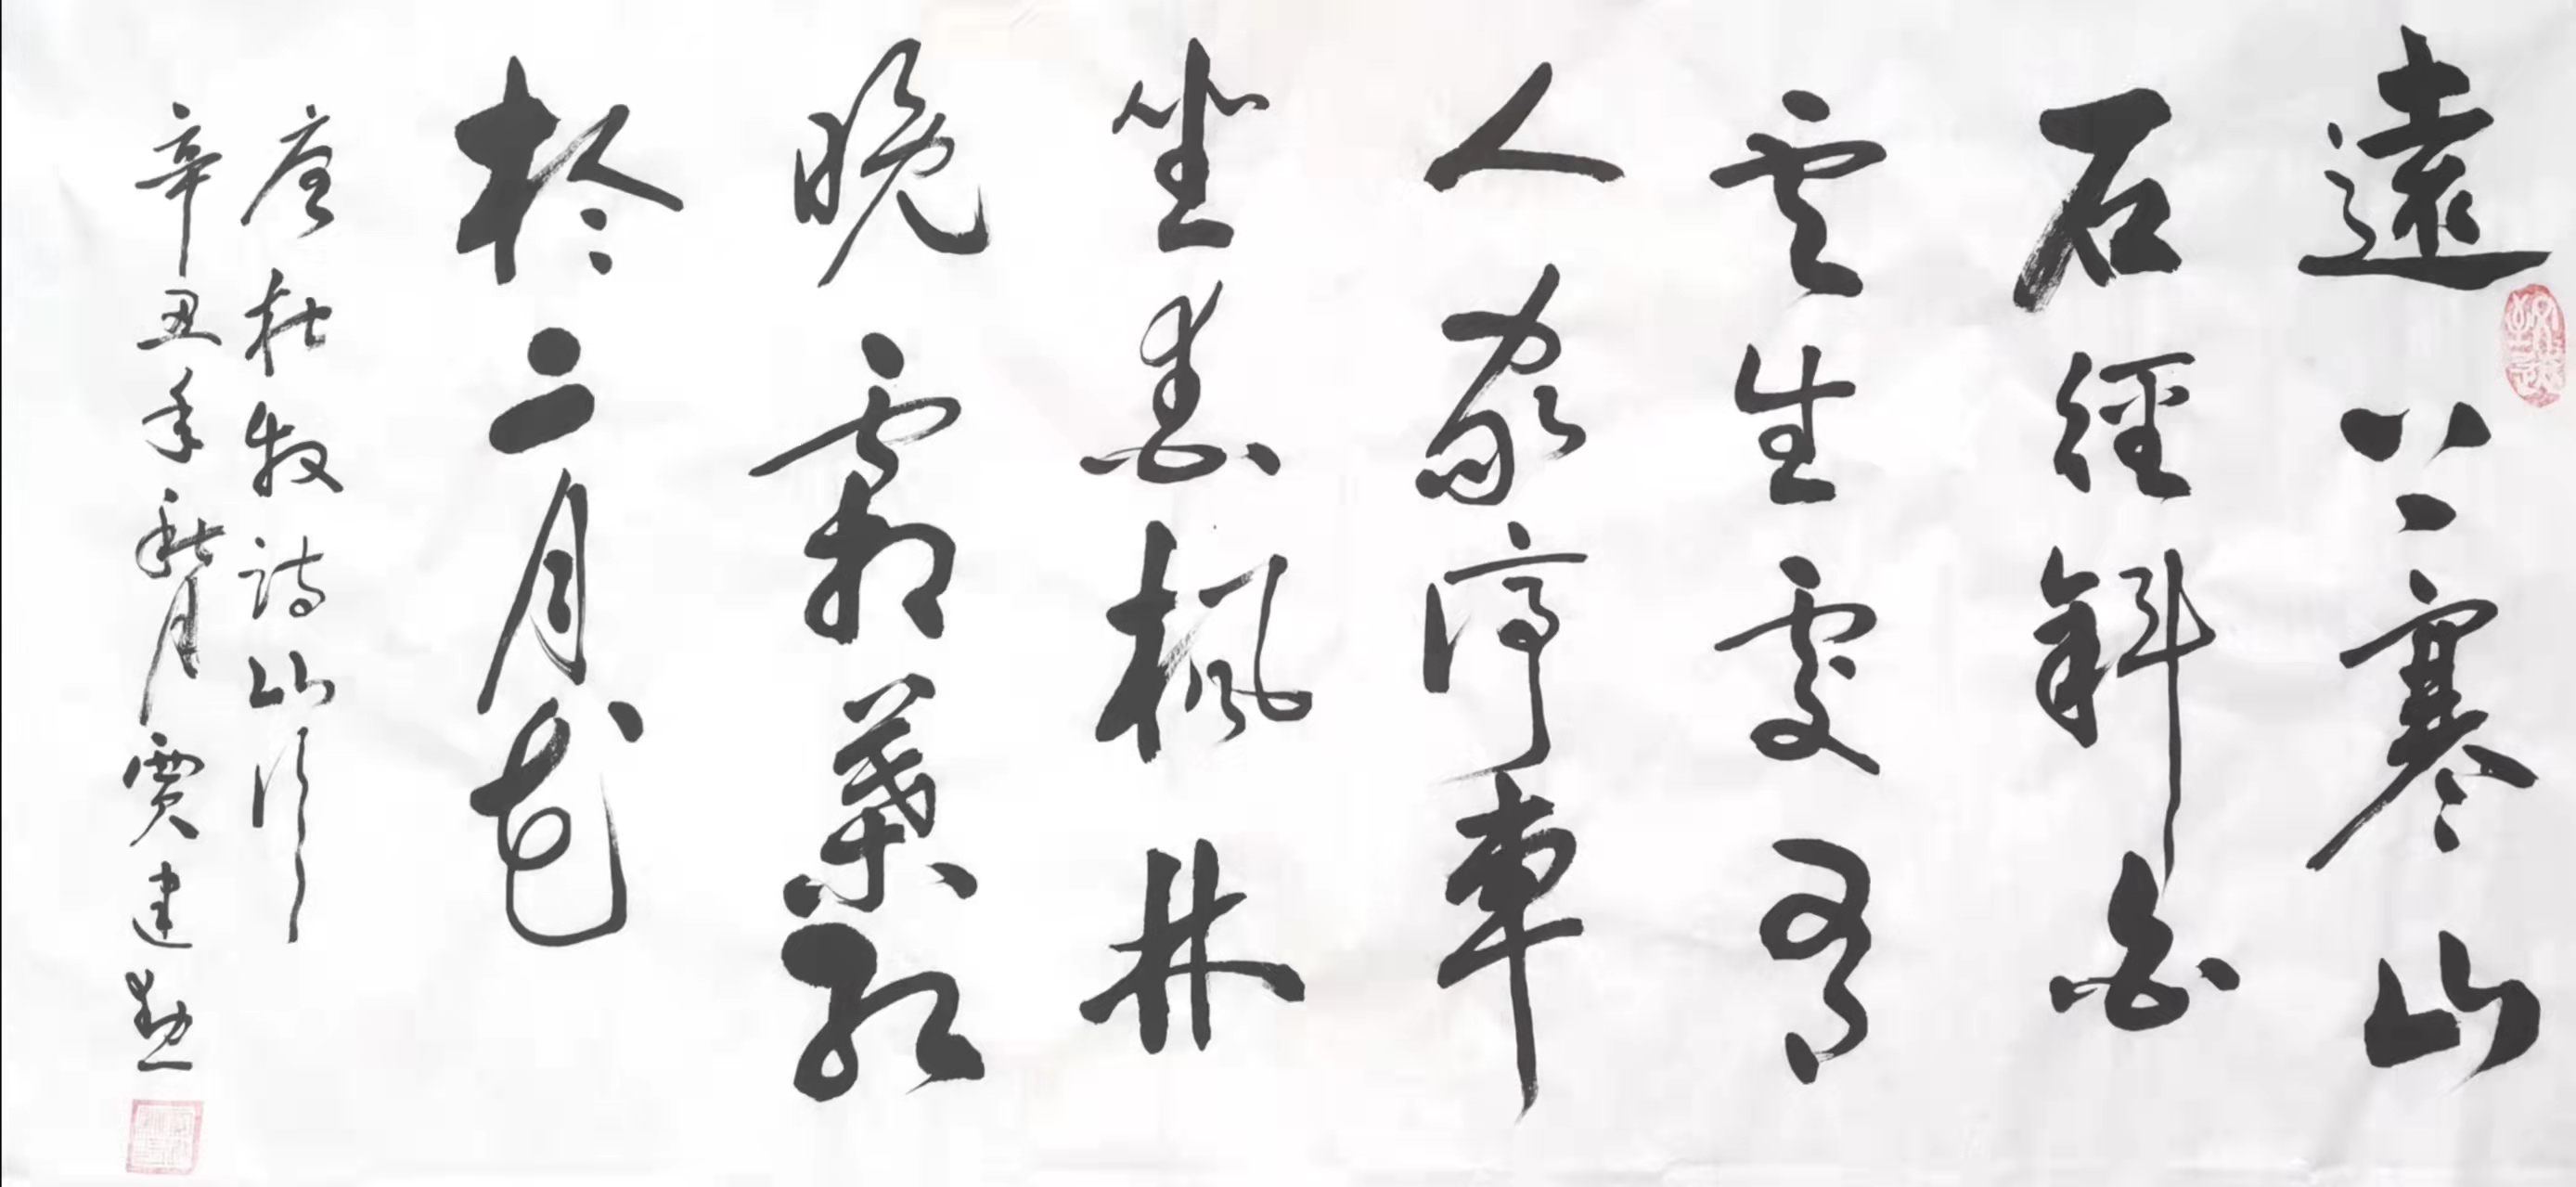 遠上寒山
石經斜白
雲生處有
人家停車
坐愛楓林
晚霜葉紅
於二月花
唐杜牧詩山行
辛丑年秋月賈建勲